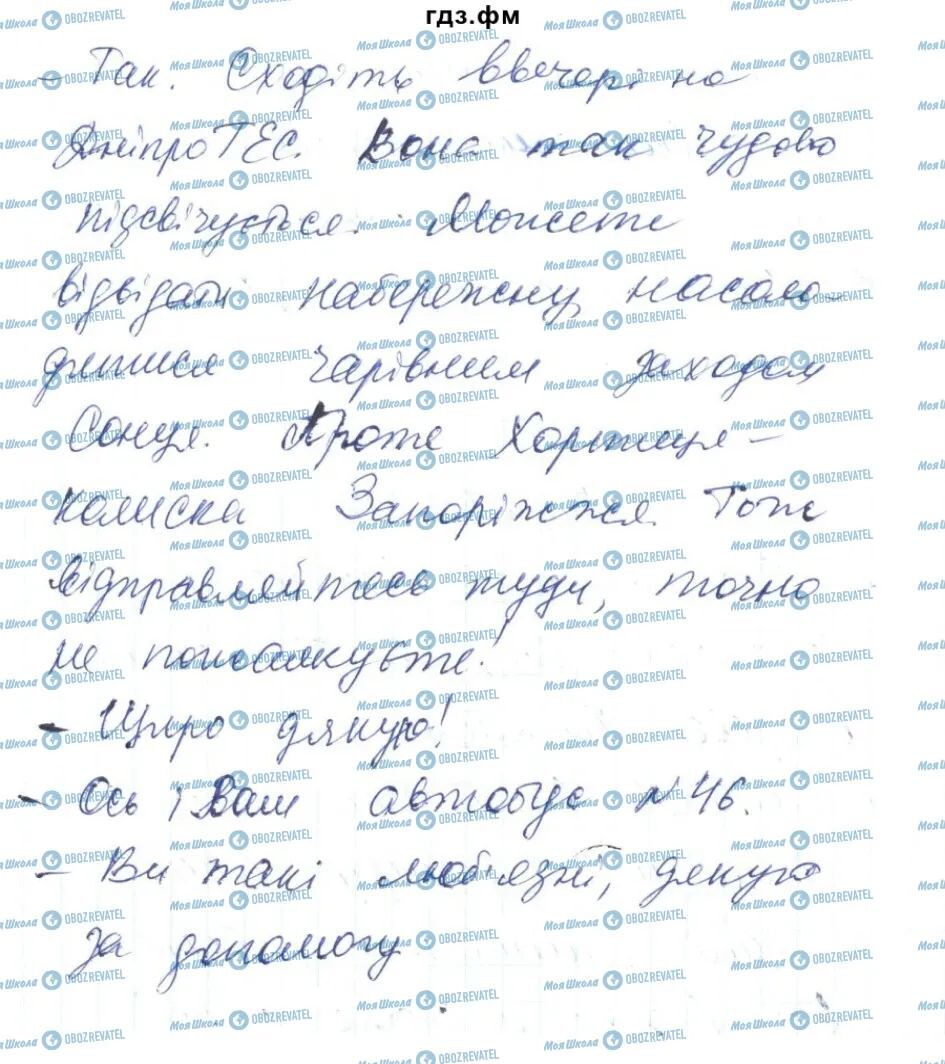 гдз.фм
- Так. Сходіть ввечорі на
ДніпроГЕС. Вона так чудово
підсвічується. Можете
відвідати набережну, насоло-
дитися чарівним заходом
Сонця. Проте Хортиця -
колиска Запоріжжя. Тож
відправляйтесь туди, точно
не пошкодуєте!
- Щиро дякую!
- Ось і Ваш автобус № 46.
- Ви такі люб'язні, дякую
за допомогу